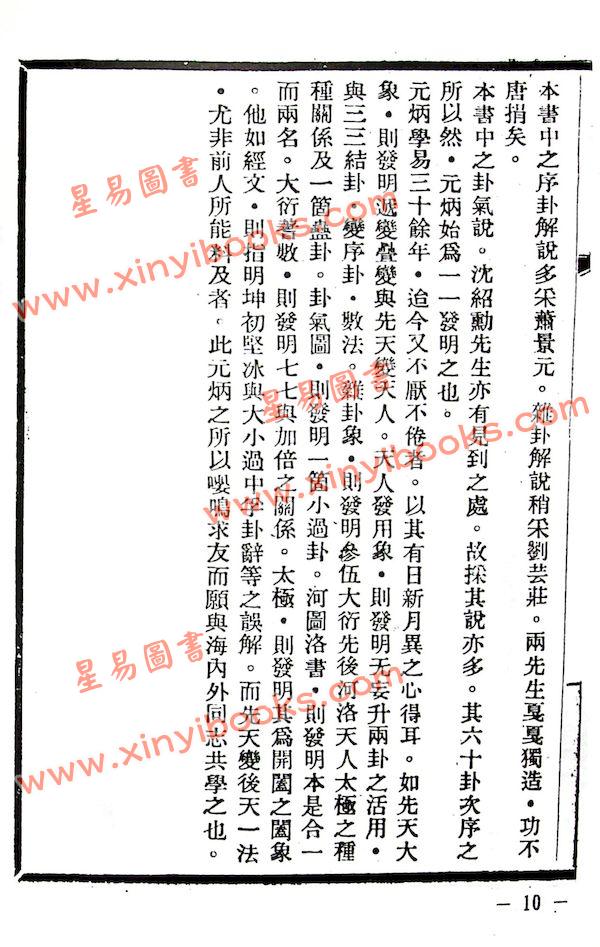 本書中之序卦解說多采蕭景元。雜卦解說稍采劉芸莊。兩先生戛戛獨造・功不
唐捐矣。
本書中之卦氣說。沈紹勳先生亦有見到之處。故採其說亦多。其六十卦次序之
所以然・元炳始爲一一發明之也。
元炳學易三十餘年・迨今又不厭不倦者。以其有日新月異之心得耳。如先天大
象・則發明遞變疊變與先天變天人。天人發用象・則發明无妄升兩卦之活用・
與三三結卦・變序卦・數法。雜卦象・則發明參伍大衍先後河洛天人太極之種
種關係及一箇蠱卦。卦氣圖・則發明一箇小過卦。河圖洛書・則發明本是合一
而兩名。大衍蓍數・則發明七七與加倍之關係。太極・則發明其爲開闔之闔象
。他如經文・則指明坤初堅冰與大小過中孚卦辭等之誤解。而先天變後天一法
・尤非前人所能料及者。此元炳之所以嚶鳴求友而願與海內外同志共學之也。
— 10 —
星易圖書
www.xinyibooks.com
星易圖書
www.xinyibooks.com
星易圖書
www.xinyibooks.com